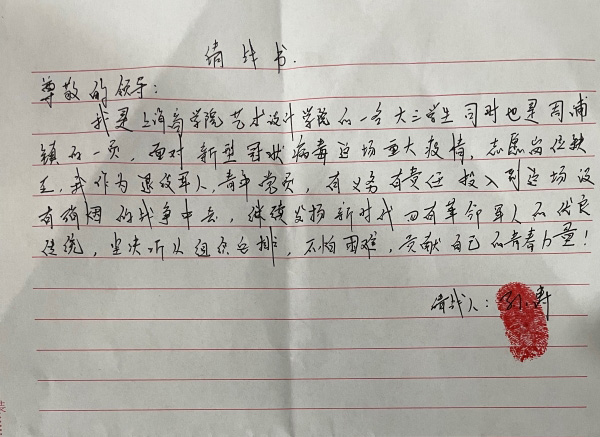 请战书.
尊敬的领导：
我是上海商学院艺术设计学院的一名大三学生同时也是周浦
镇的一员，面对新型冠状病毒这场重大疫情，志愿岗位缺
乏，我作为退役军人，青年党员，有义务有责任投入到这场没
有硝烟的战争中去，继续发扬新时代四有革命军人的优良
传统，坚决听从组织安排，不怕困难，贡献自己的青春力量！
请战人：